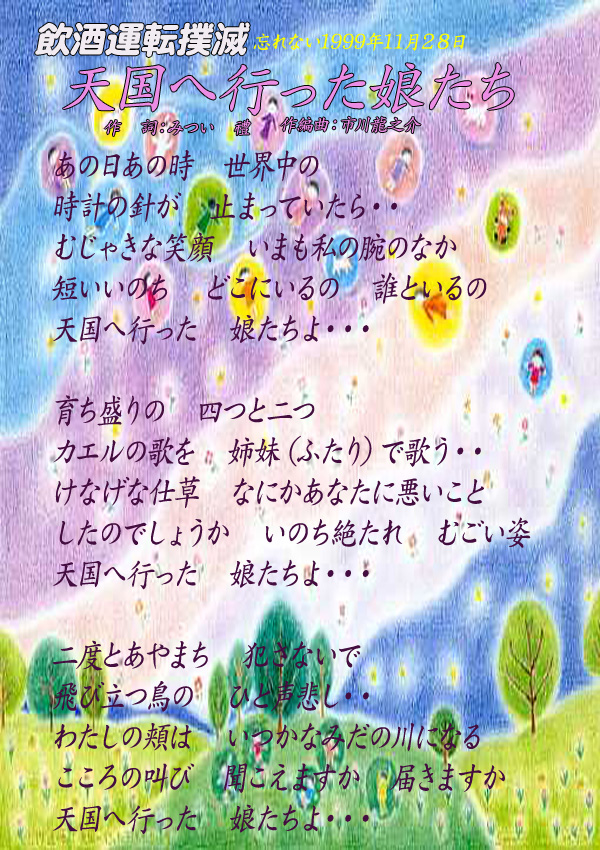 飲酒運転撲滅 忘れない1999年11月28日
天国へ行った娘たち
作 詞:みつい 禮 作編曲:市川龍之介
あの日あの時 世界中の
時計の針が 止まっていたら・・
むじゃきな笑顔 いまも私の腕のなか
短いいのち どこにいるの 誰といるの
天国へ行った 娘たちよ・・・
育ち盛りの 四つと二つ
カエルの歌を 姉妹(ふたり)で歌う・・
けなげな仕草 なにかあなたに悪いこと
したのでしょうか いのち絶たれ むごい姿
天国へ行った 娘たちよ・・・
二度とあやまち 犯さないで
飛び立つ鳥の ひと声悲し・・
わたしの頬は いつかなみだの川になる
こころの叫び 聞こえますか 届きますか
天国へ行った 娘たちよ・・・